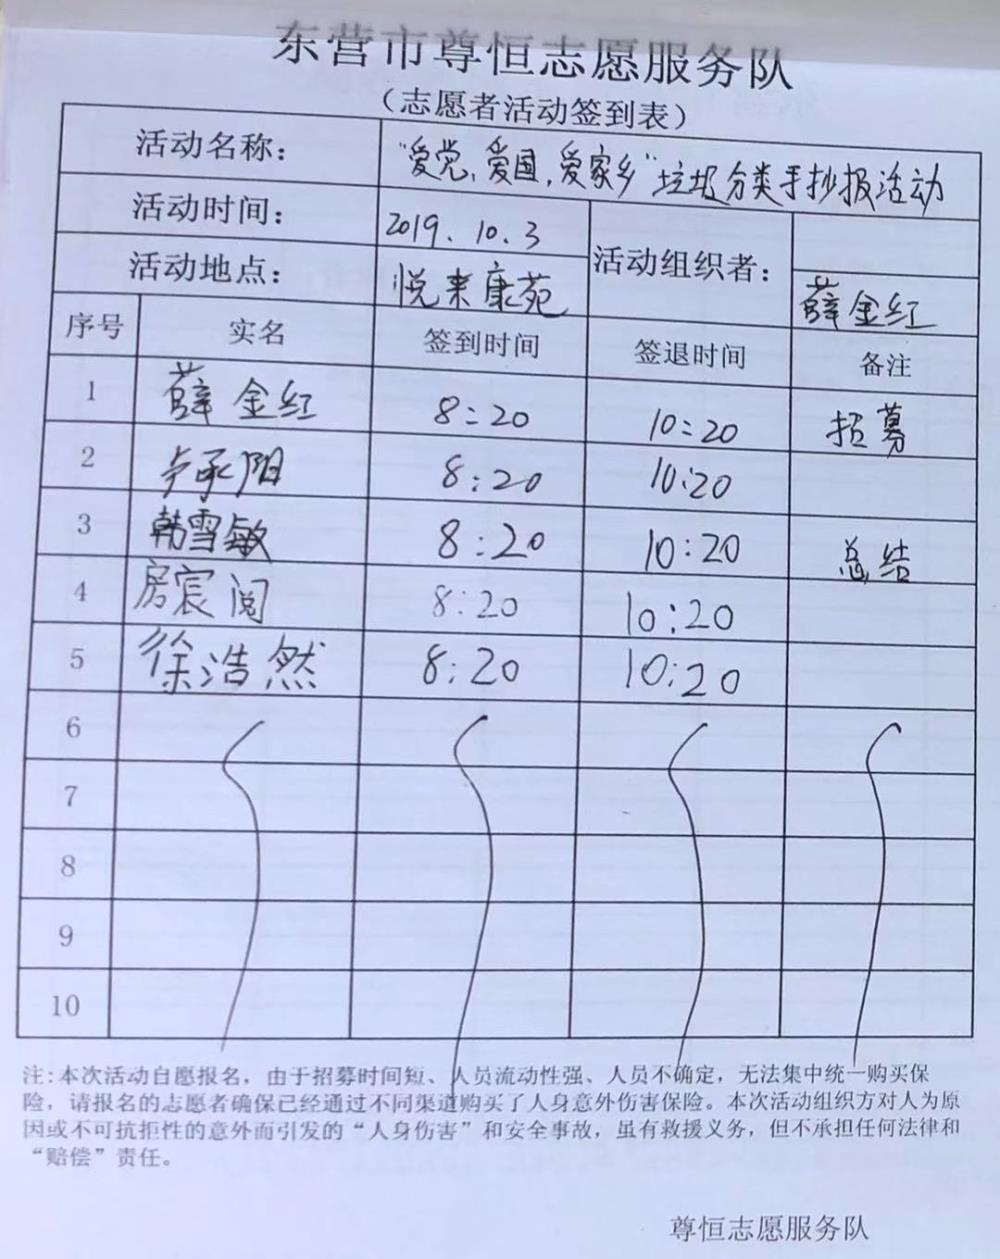 东营市尊恒志愿服务队
（志愿者活动签到表）
活动名称： “爱党、爱国，爱家乡”垃圾分类手抄报活动
活动时间： 2019.10.3
活动组织者： 薛金红
活动地点： 悦来康苑
序号 实名 签到时间 签退时间 备注
1 薛金红 8:20 10:20 招募
2 卢承阳 8:20 10:20
3 韩雪敏 8:20 10:20 总结
4 房宸阅 8:20 10:20
5 徐浩然 8:20 10:20
6
7
8
9
10
注:本次活动自愿报名，由于招募时间短、人员流动性强、人员不确定，无法集中统一购买保
险，请报名的志愿者确保已经通过不同渠道购买了人身意外伤害保险。本次活动组织方对人为原
因或不可抗拒性的意外而引发的“人身伤害”和安全事故，虽有救援义务，但不承担任何法律和
“赔偿”责任。
尊恒志愿服务队